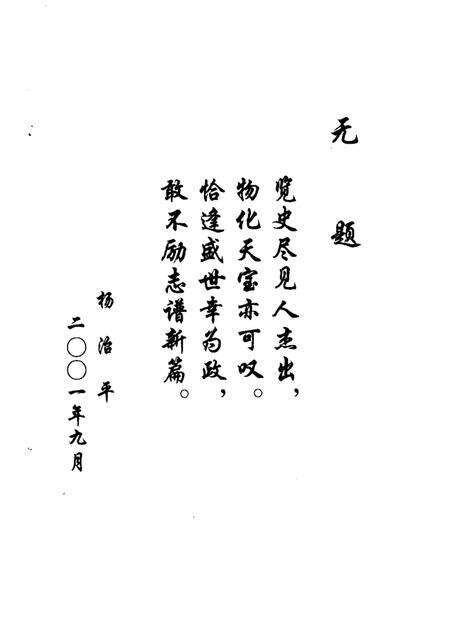 无题
览史尽见人杰出，
物化天宝亦可叹。
恰逢盛世幸为政，
敢不励志谱新篇。
杨治平
二〇〇一年九月